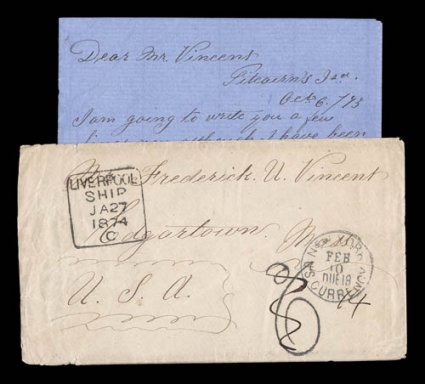 Dear Mr. Vincent
Pitcairn's Isd.
Oct 6./73
I am going to write you a few
I have been
LIVERPOOL
SHIP
JA27
1874
C
Mr. Frederick. U. Vincent
Edgartown Mass
U. S. A.
FEB
10
DUE 18
CURRENCY